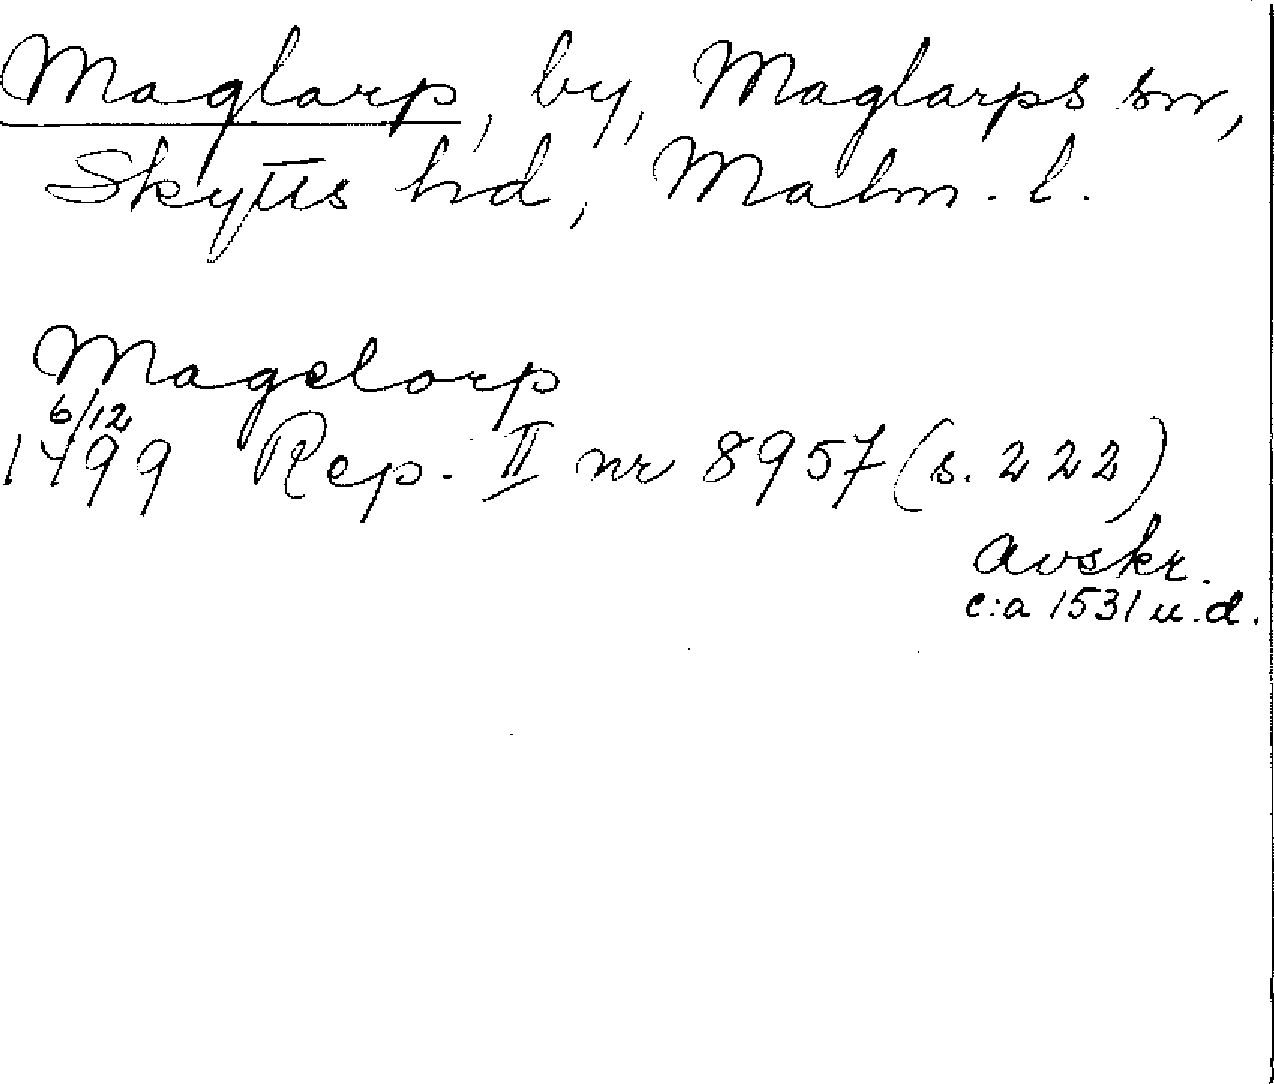 Maglarp, by, Maglarps sn,
Skytts hd, Malm. l.
Magelorp
6/12
1499 Rep. II nr 8957 (s. 222)
Avskr.
c:a 1531 u.d.